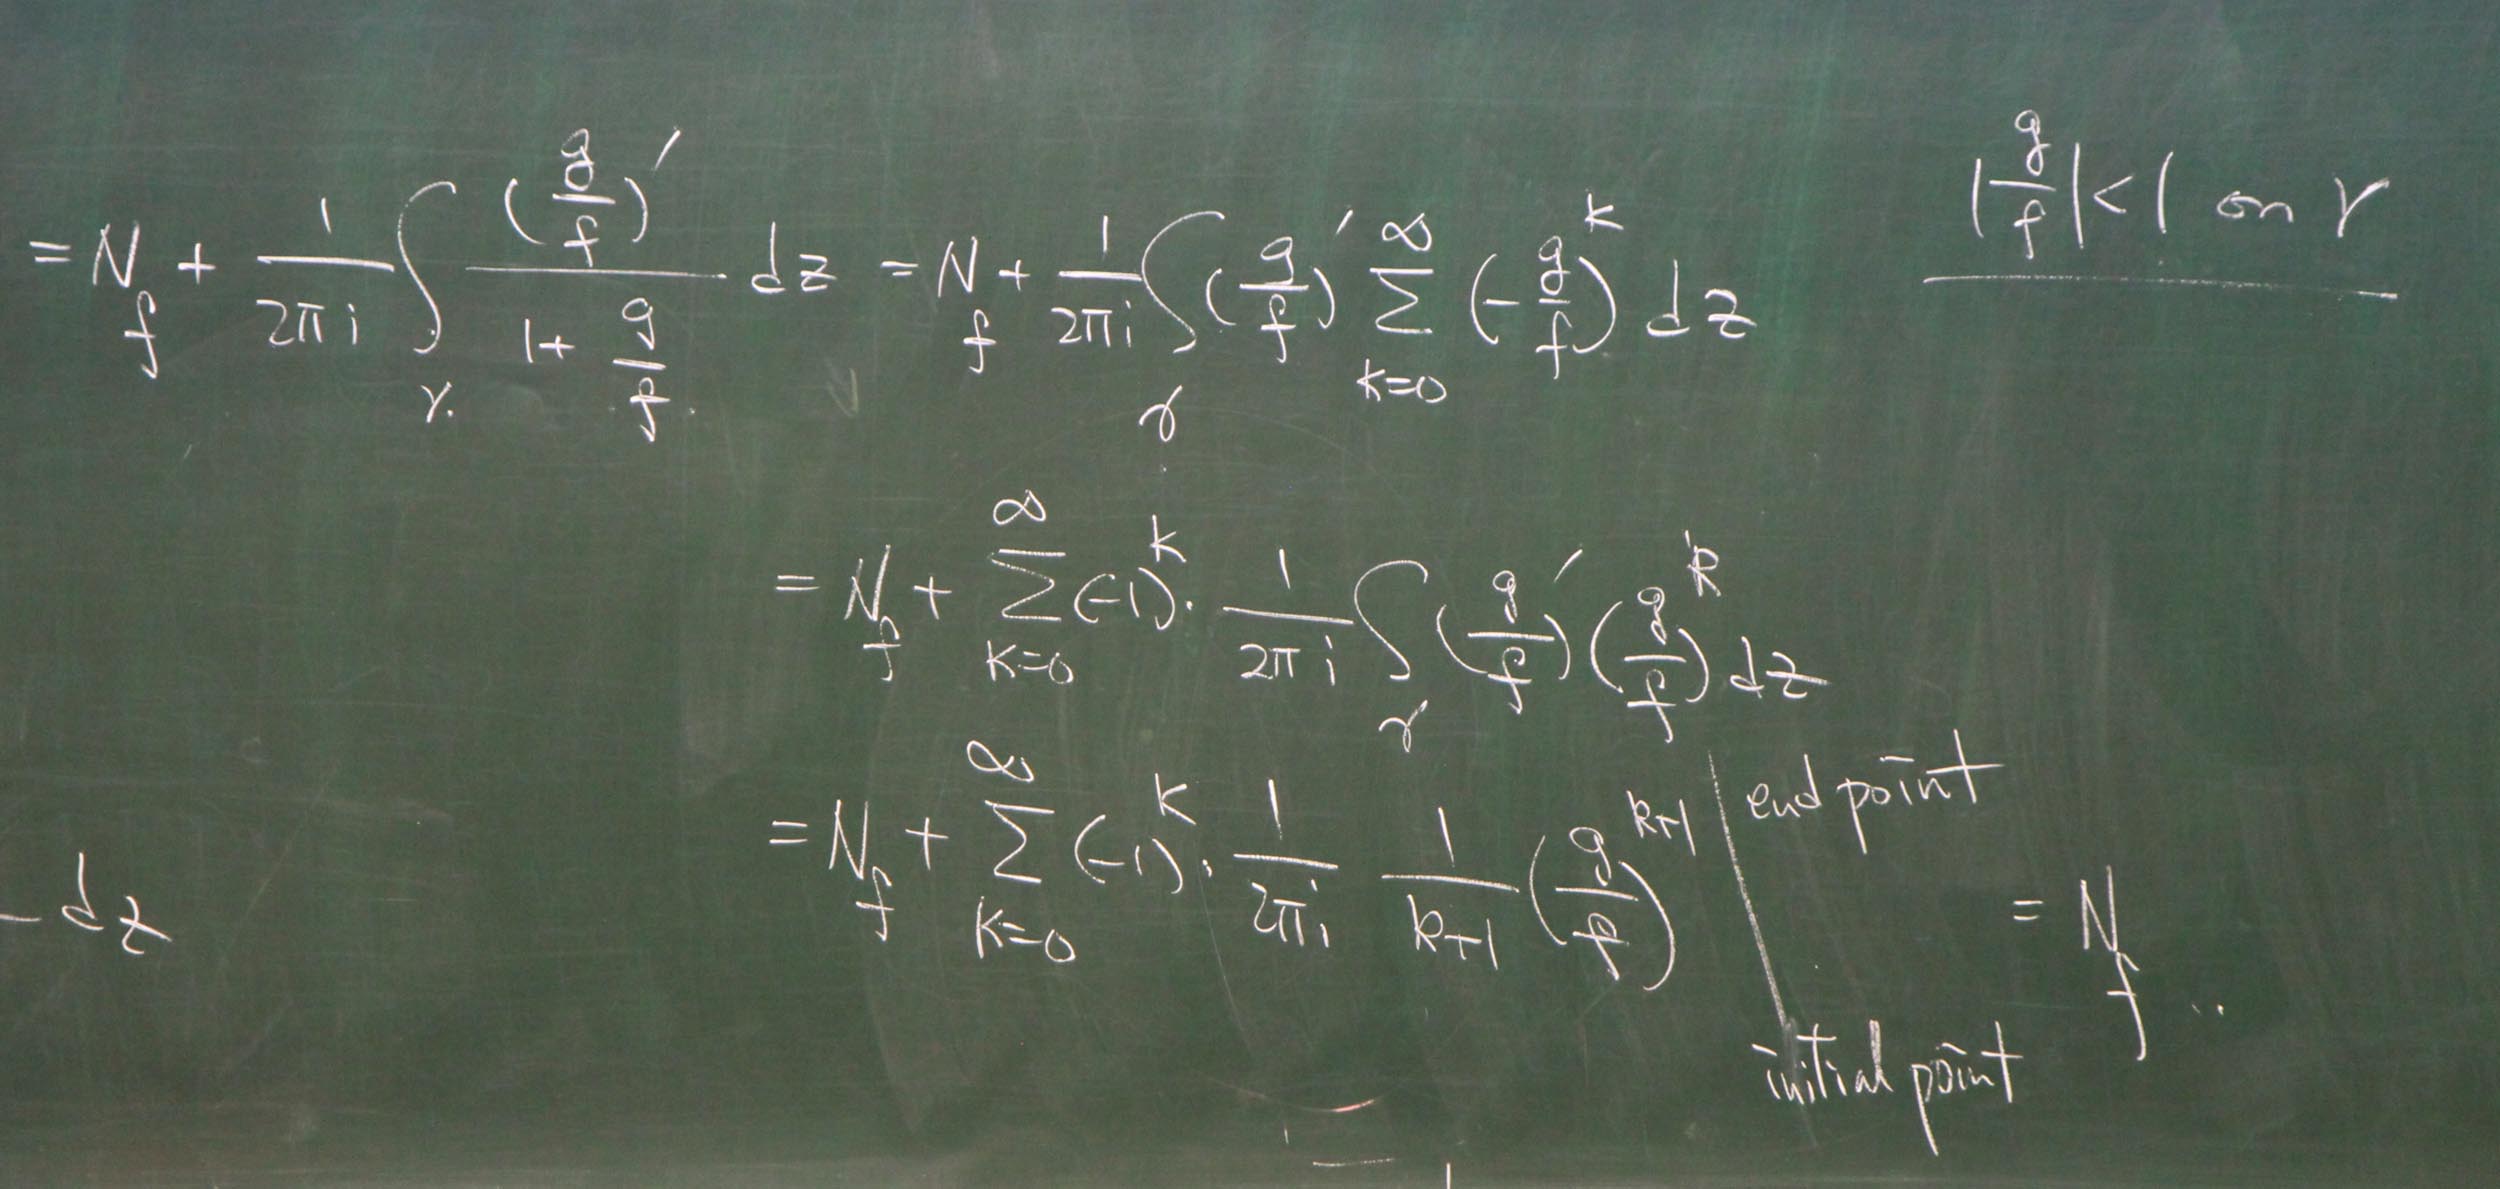 = N_f + \frac{1}{2πi} ∫_γ \frac{(\frac{g}{f})'}{1+\frac{g}{f}} dz = N_f + \frac{1}{2πi} ∫_γ (\frac{g}{f})' \sum_{k=0}^{∞} (-\frac{g}{f})^k dz
|\frac{g}{f}| < 1 on γ
= N_f + \sum_{k=0}^{∞} (-1)^k · \frac{1}{2πi} ∫_γ (\frac{g}{f})' (\frac{g}{f})^k dz
= N_f + \sum_{k=0}^{∞} (-1)^k · \frac{1}{2πi} \frac{1}{k+1} (\frac{g}{f})^{k+1} |_{initial point}^{end point} = N_f
dz